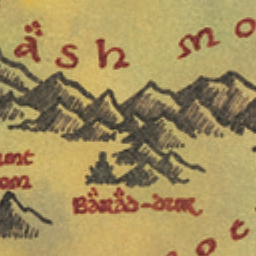 äsh mo
unt
om
Bäräd-dûr
ot